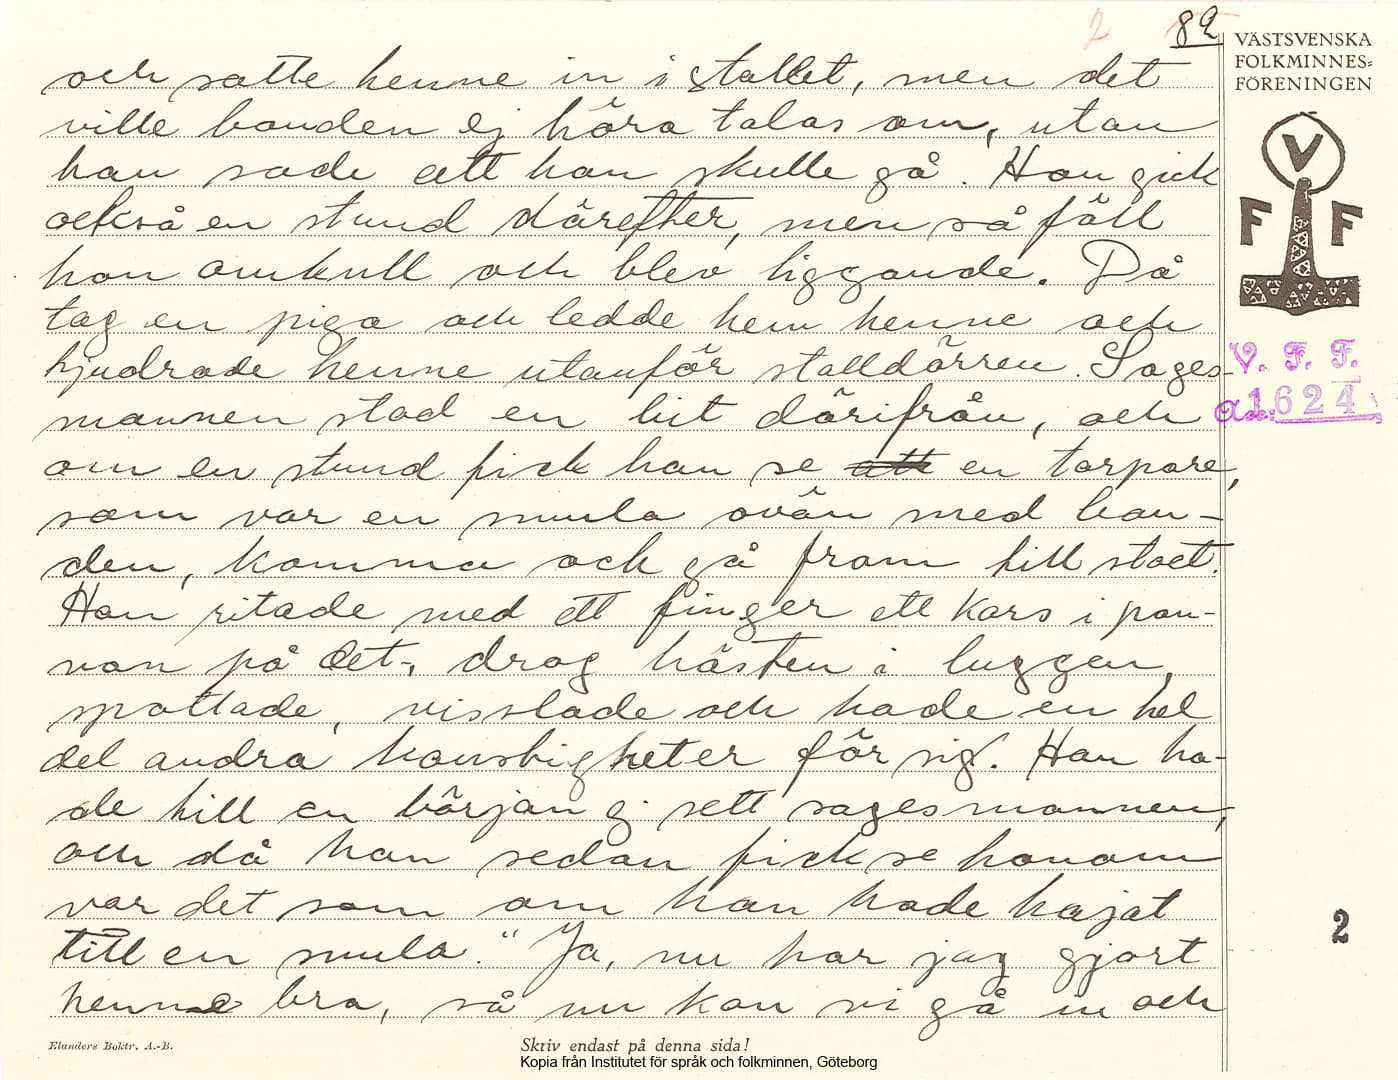 2 82
VÄSTSVENSKA
FOLKMINNES=
FÖRENINGEN
V
F F
V. F. F.
Acc: 1624
och satte henne in i stallet, men det
ville bonden ej höra talas om, utan
han sade att hon skulle gå. Hon gick
också en stund därefter, men så föll
hon omkull och blev liggande. Då
tog en piga och ledde hem henne och
tjudrade henne utanför stalldörren. Sages-
mannen stod en bit därifrån, och
om en stund fick han se att en torpare,
som var en smula ovän med bon-
den, komma och gå fram till stoet.
Han ritade med ett finger ett kors i pan-
nan på det, drog hästen i luggen,
spottade, visslade och hade en hel
del andra konstigheter för sig. Han ha-
de till en början ej sett sagesmannen,
och då han sedan fick se honom
var det som om han hade hajat
till en smula. "Ja, nu har jag gjort
henne bra, så nu kan vi gå in och
2
Elanders Boktr. A.-B.
Skriv endast på denna sida!
Kopia från Institutet för språk och folkminnen, Göteborg